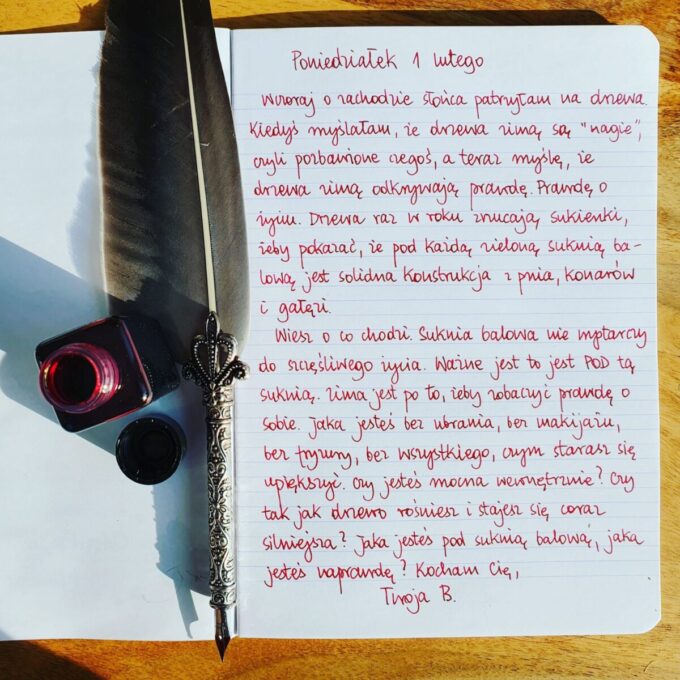 Poniedziałek 1 lutego
Wczoraj o zachodzie słońca patrzyłam na drzewa.
Kiedyś myślałam, że drzewa zimą są "nagie",
czyli pozbawione czegoś, a teraz myślę, że
drzewa zimą odkrywają prawdę. Prawdę o
życiu. Drzewa raz w roku zrzucają sukienki,
żeby pokazać, że pod każdą zieloną suknią ba-
lową jest solidna konstrukcja z pnia, konarów
i gałęzi.
Wiesz o co chodzi. Suknia balowa nie wystarczy
do szczęśliwego życia. Ważne jest to jest POD tą
suknią. Zima jest po to, żeby zobaczyć prawdę o
sobie. Jaka jesteś bez ubrania, bez makijażu,
bez fryzury, bez wszystkiego, czym starasz się
upiększyć. Czy jesteś mocna wewnętrznie? Czy
tak jak drzewo rośniesz i stajesz się coraz
silniejsza? Jaka jesteś pod suknią balową, jaka
jesteś naprawdę? Kocham Cię,
Twoja B.